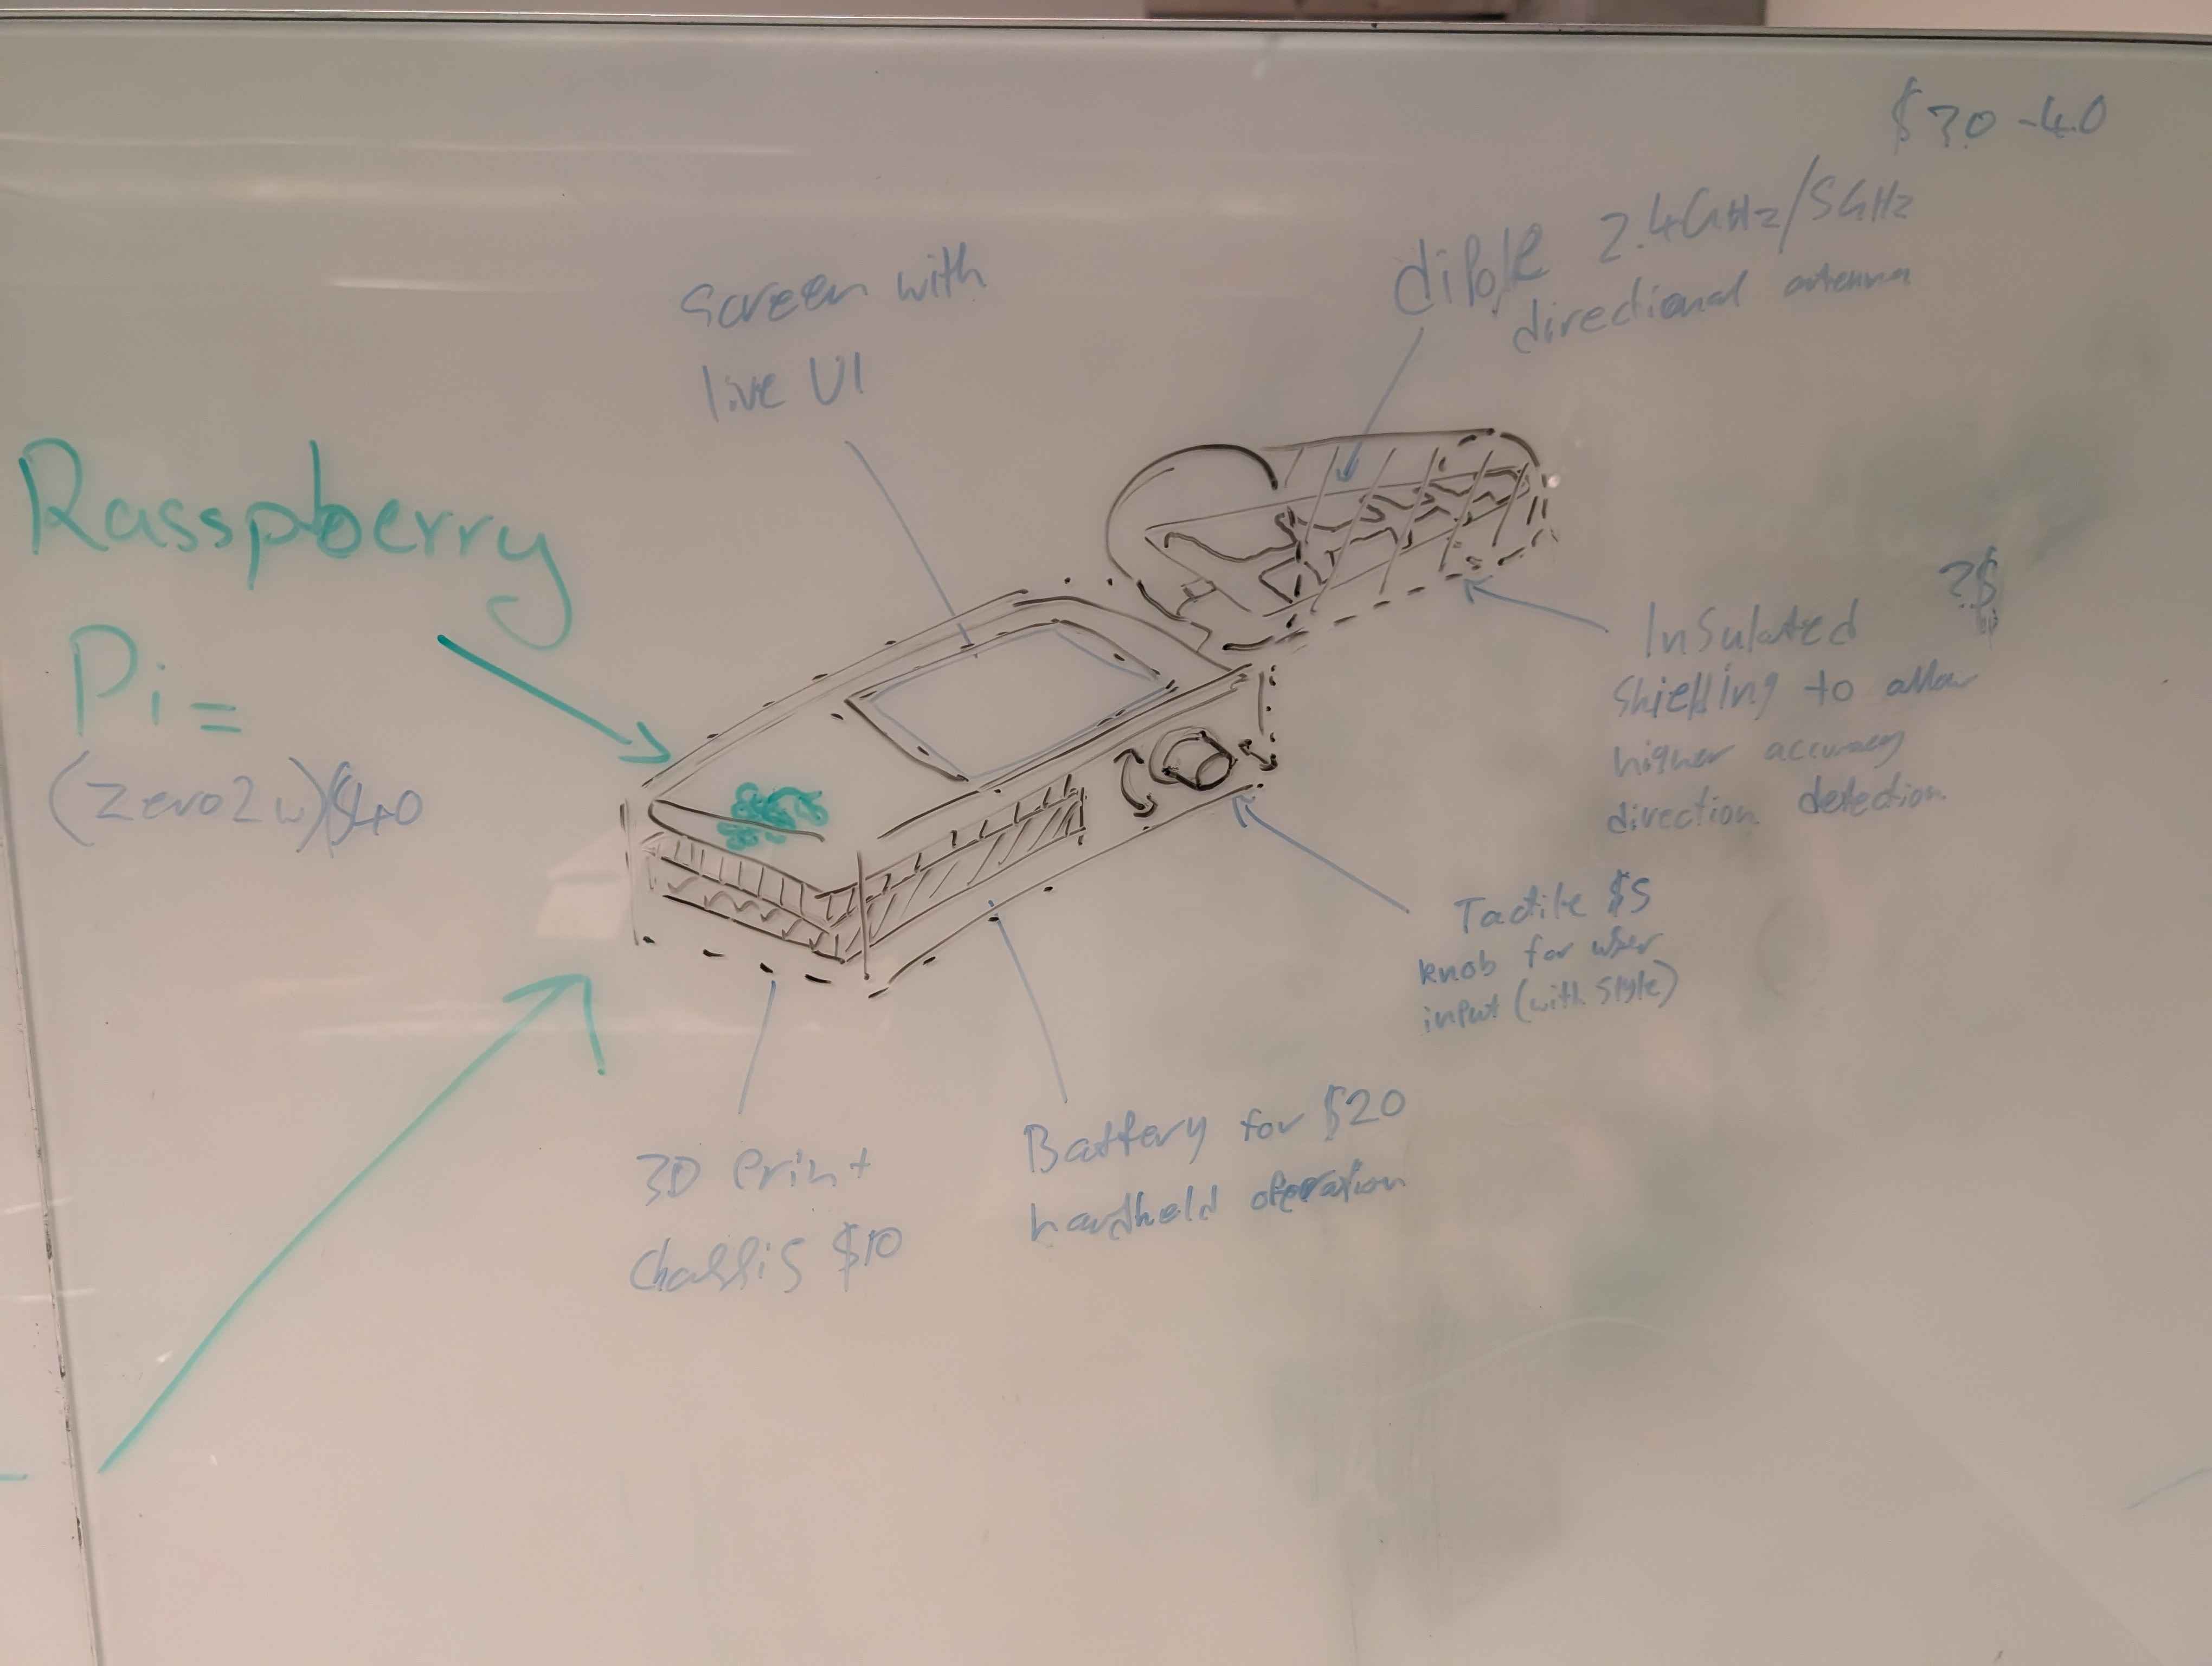 $30-40
dipole 2.4GHz/5GHz
directional antenna
Screen with
live UI
Rasspberry
Pi =
(Zero2w)$40
?$
Insulated
Shielding to allow
higher accuracy
direction detection
Tactile $5
knob for user
input (with style)
Battery for $20
handheld operation
3D Print
Chassis $10